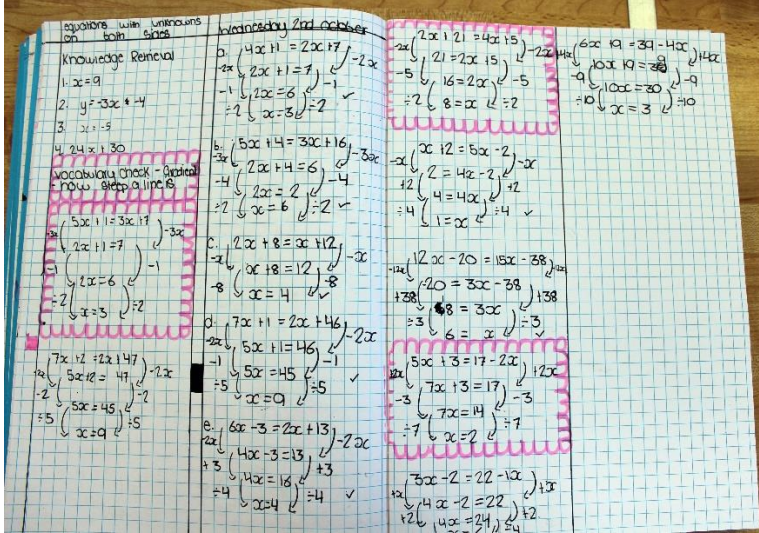 equations with unknowns
on both sides
Knowledge Retrieval
1. x = 9
2. y = -3x + -4
3. x = -5
4. 24x + 30
Vocabulary check - Gradient
- how steep a line is
5x + 1 = 3x + 7
-3x -3x
2x + 1 = 7
-1 -1
2x = 6
÷2 ÷2
x = 3
7x + 2 = 2x + 47
-2x -2x
5x + 2 = 47
-2 -2
5x = 45
÷5 ÷5
x = 9
Wednesday 2nd october
a. 4x + 1 = 2x + 7
-2x -2x
2x + 1 = 7
-1 -1
2x = 6
÷2 ÷2
x = 3 ✓
b. 5x + 4 = 3x + 16
-3x -3x
2x + 4 = 6
-4 -4
2x = 2
÷2 ÷2
x = 6 ✓
c. 2x + 8 = x + 12
-x -x
x + 8 = 12
-8 -8
x = 4 ✓
d. 7x + 1 = 2x + 46
-2x -2x
5x + 1 = 46
-1 -1
5x = 45 ✓
÷5 ÷5
x = 9
e. 6x - 3 = 2x + 13
-2x -2x
4x - 3 = 13
+3 +3
4x = 16
÷4 ÷4 ✓
x = 4
2x + 21 = 4x + 5
-2x -2x
21 = 2x + 5
-5 -5
16 = 2x
÷2 ÷2
8 = x
x + 2 = 5x - 2
-x -x
2 = 4x - 2
+2 +2
4 = 4x
÷4 ÷4 ✓
1 = x
12x - 20 = 15x - 38
-12x -12x
-20 = 3x - 38
+38 +38
18 = 3x
÷3 ÷3
6 = x ✓
5x + 3 = 17 - 2x
+2x +2x
7x + 3 = 17
-3 -3
7x = 14
÷7 ÷7
x = 2
3x - 2 = 22 - 1x
+x +x
4x - 2 = 22
+2 +2
4x = 24
÷4
6x + 9 = 39 - 4x
+4x +4x
10x + 9 = 39
-9 -9
10x = 30
÷10 ÷10
x = 3